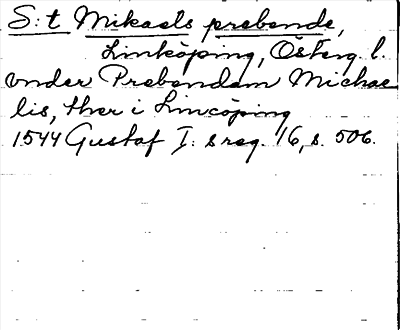 S:t Mikaels prebende,
Linköping, Österg. l.
vnder Prebendam Michae
lis, ther i Lincöping
1544 Gustaf I:s reg. 16, s. 506.